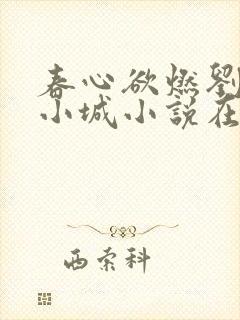 春心欲燃劉
小城小說在
西索科